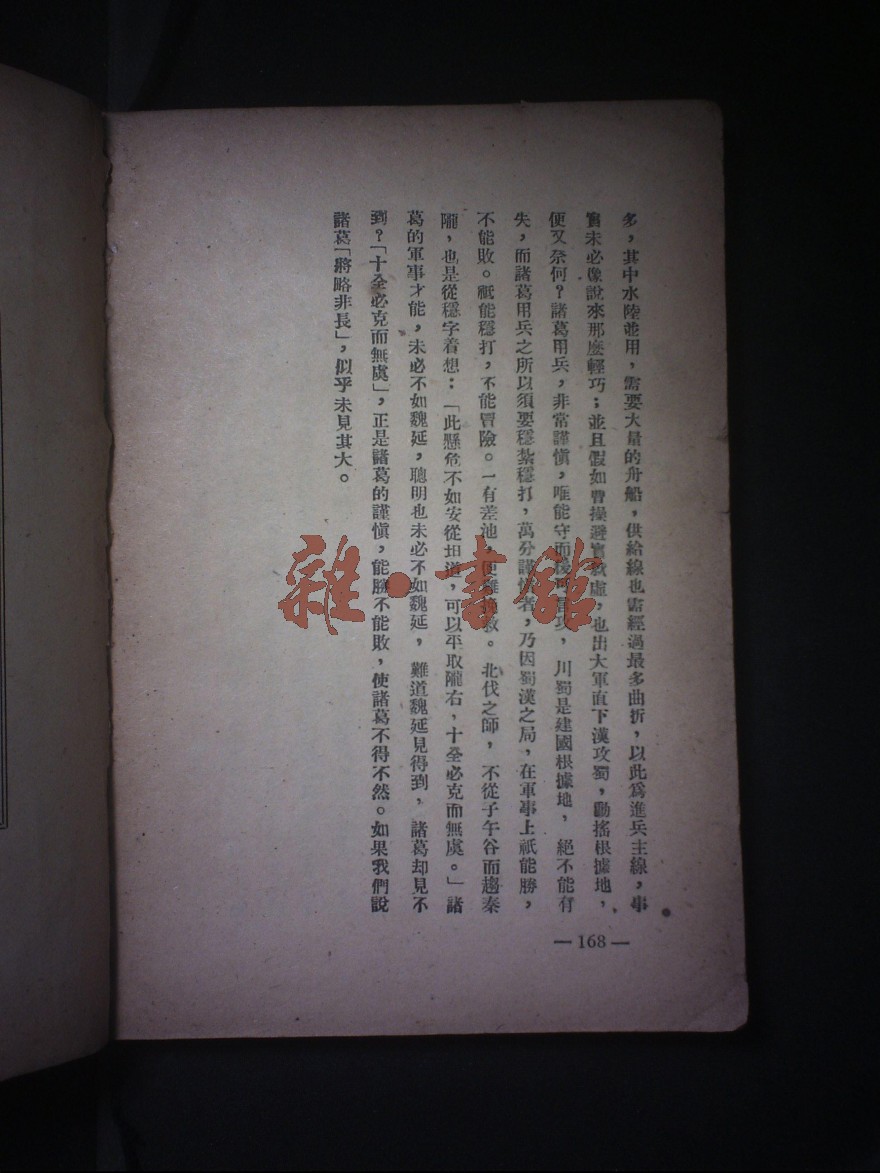 多，其中水陸並用，需要大量的舟船，供給線也需經過最多曲折，以此爲進兵主線，事
實未必像說來那麼輕巧；並且假如曹操避實就虛，也出大軍直下漢攻蜀，動搖根據地，
便又奈何？諸葛用兵，非常謹慎，唯能守而後可言攻，川蜀是建國根據地，絕不能有
失，而諸葛用兵之所以須要穩紮穩打，萬分謹慎者，乃因蜀漢之局，在軍事上祇能勝，
不能敗。祇能穩打，不能冒險。一有差池，便難挽救。北伐之師，不從子午谷而趨秦
隴，也是從穩字着想：「此懸危不如安從坦道，可以平取隴右，十全必克而無虞。」諸
葛的軍事才能，未必不如魏延，聰明也未必不如魏延，難道魏延見得到，諸葛却見不
到？「十全必克而無虞」，正是諸葛的謹慎，能勝不能敗，使諸葛不得不然。如果我們說
諸葛「將略非長」，似乎未見其大。
—168—
雜·書館